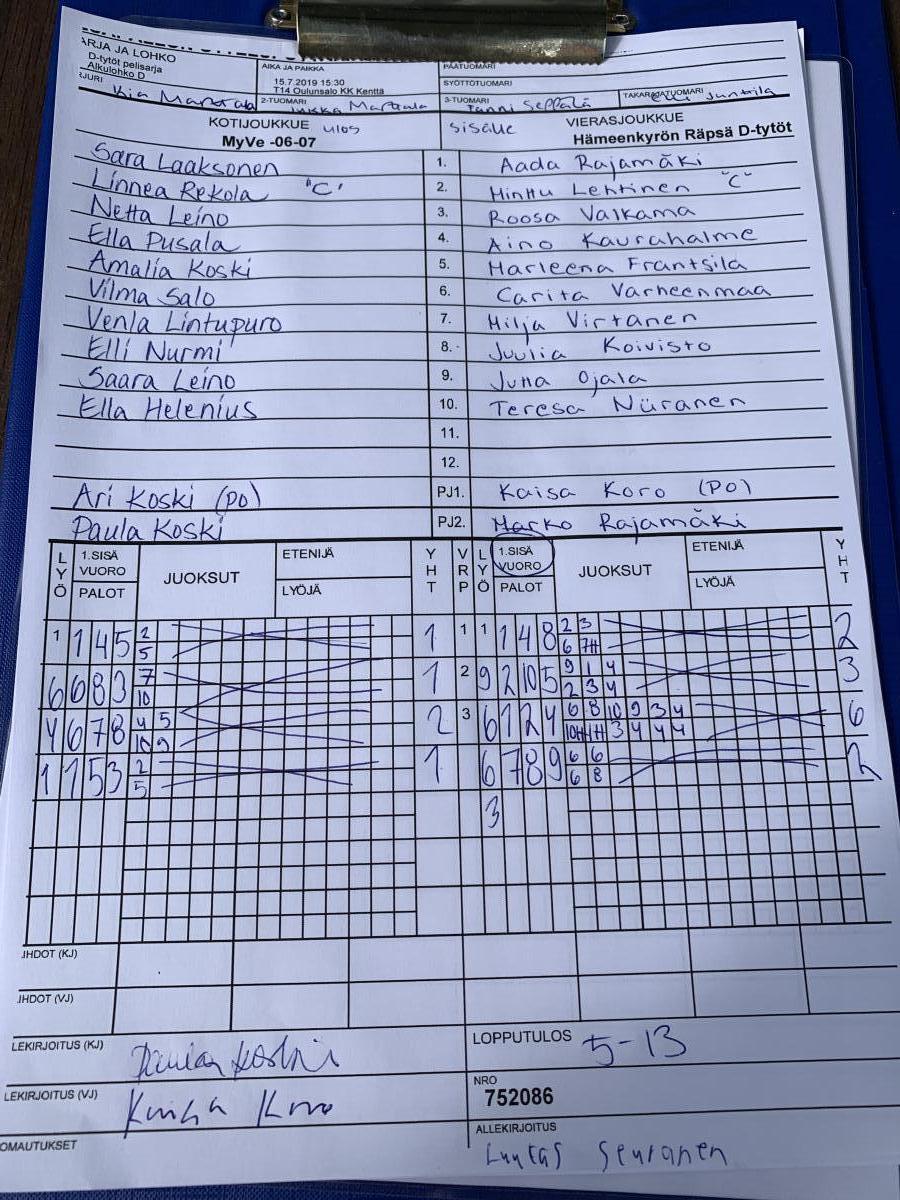 ARJA JA LOHKO
D-tytöt pelisarja
Alkulohko D
AIKA JA PAIKKA
15.7.2019 15:30
T14 Oulunsalo KK Kenttä
PÄÄTUOMARI
SYÖTTÖTUOMARI
JURI
Kia
2-TUOMARI
Marttala
3-TUOMARI
Seppälä
TAKARAJATUOMARI
Elli Junttila
KOTIJOUKKUE ulos sisälle VIERASJOUKKUE
MyVe -06-07 Hämeenkyrön Räpsä D-tytöt
Sara Laaksonen 1. Aada Rajamäki
Linnea Rekola "C" 2. Minttu Lehtinen "C"
Netta Leino 3. Roosa Valkama
Ella Pusala 4. Aino Kaurahalme
Amalia Koski 5. Marleena Frantsila
Vilma Salo 6. Carita Varheenmaa
Venla Lintupuro 7. Milja Virtanen
Elli Nurmi 8. Juulia Koivisto
Saara Leino 9. Jutta Ojala
Ella Helenius 10. Teresa Niiranen
11.
12.
Ari Koski (PO) PJ1. Kaisa Koro (PO)
Paula Koski PJ2. Marko Rajamäki
LYÖ 1.SISÄ VUORO PALOT JUOKSUT ETENIJÄ LYÖJÄ YHT VRP LYÖ 1.SISÄ VUORO PALOT JUOKSUT ETENIJÄ LYÖJÄ YHT
1 1 4 5 2 1 1 1 1 4 8 2 3 2
5 6 7H
6 6 8 3 7 1 2 9 2 10 5 9 1 4 3
10 2 3 4
4 6 7 8 4 5 2 3 6 1 2 4 6 8 10 9 3 4 6
10 9 10H 1H 3 4 4 4
1 1 5 3 2 1 6 7 8 9 6 6 2
5 6 8
3
JHDOT (KJ)
JHDOT (VJ)
LEKIRJOITUS (KJ) Paula Koski
LOPPUTULOS 5-13
LEKIRJOITUS (VJ) Kaisa Koro
NRO
752086
OMAUTUKSET
ALLEKIRJOITUS
Seuranen